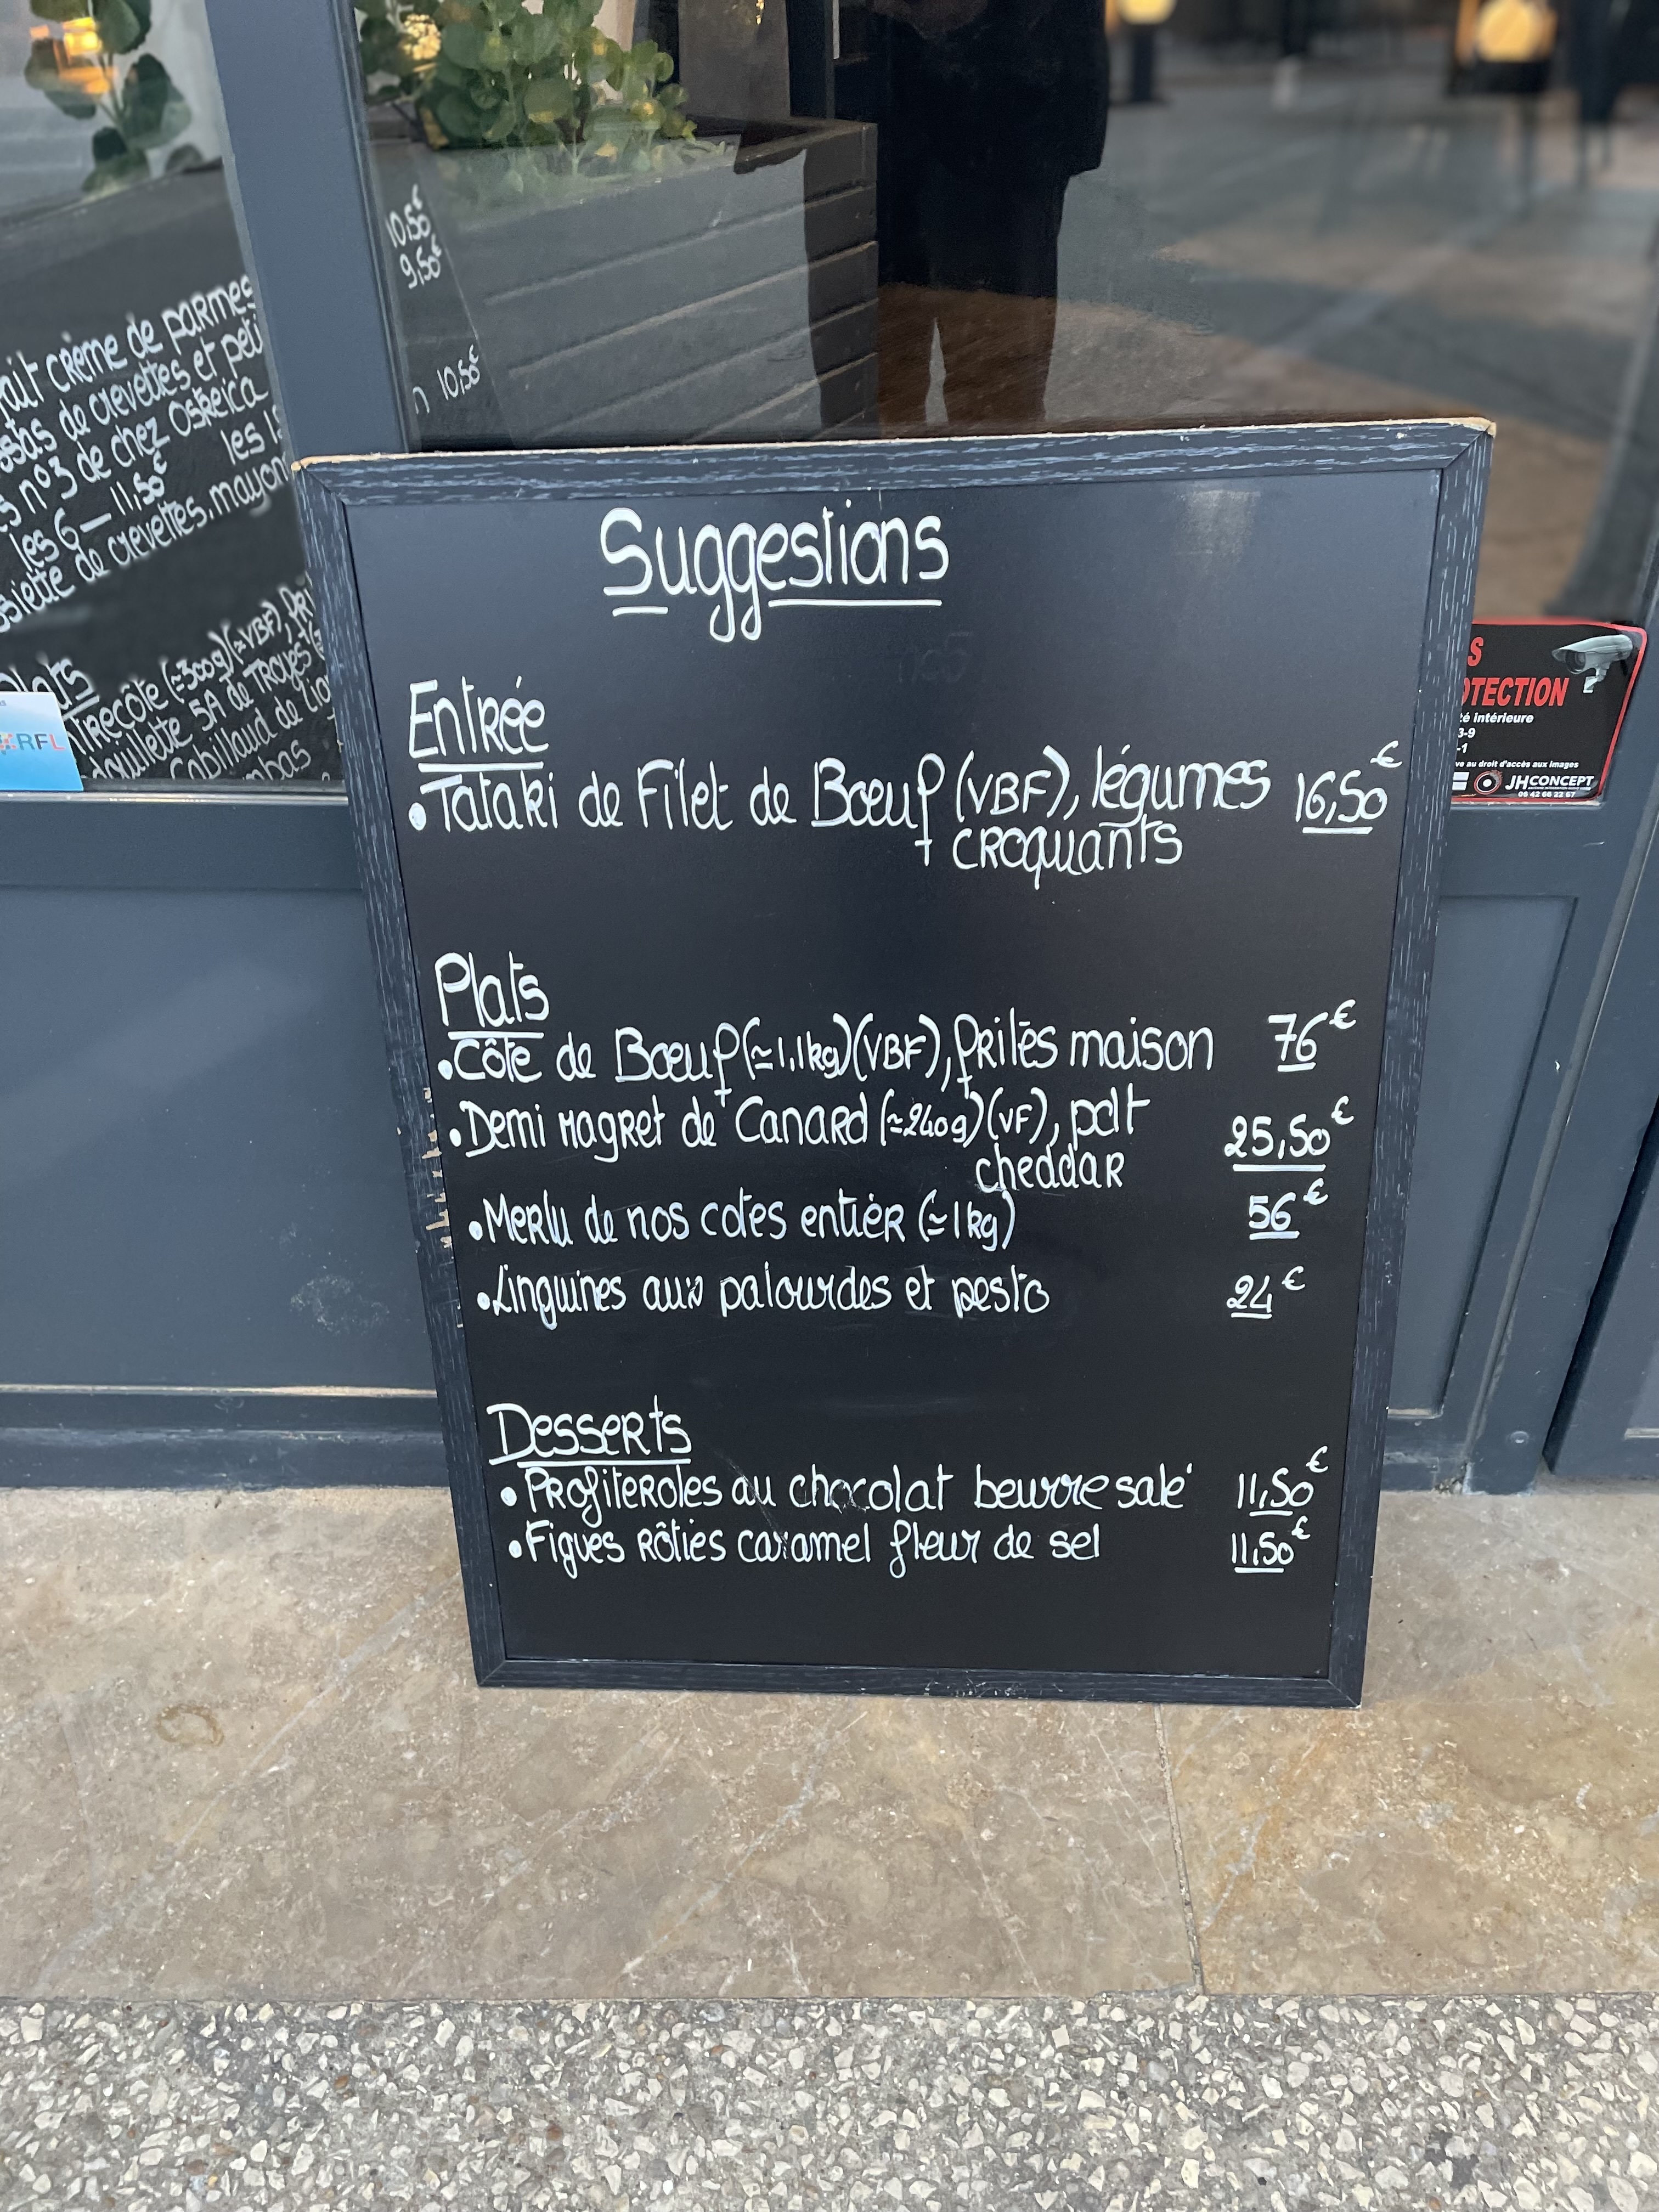 10,50€
9,50€
n 10,50€
ait crème de parmes
de crevettes et peti
s n°3 de chez Oskeica
les 6 — 11,50€ les 1
ssiette de crevettes, mayon
Plats
trecôte (≃300g)(≃VBF), fri
douillette 5A de Troyes
Cabillaud de
mbas
RFL
Suggestions
Entrée
• Tataki de Filet de Bœuf (VBF), légumes 16,50€
croquants
Plats
• Côte de Bœuf (≃1,1kg)(VBF), frites maison 76€
• Demi magret de Canard (≃240g)(VF), pdt 25,50€
cheddar
• Merlu de nos cotes entier (≃1kg) 56€
• Linguines aux palourdes et pesto 24€
Desserts
• Profiteroles au chocolat beurre salé 11,50€
• Figues Rôties caramel fleur de sel 11,50€
S
OTECTION
té intérieure
3-9
-1
ve au droit d'accès aux images
JHCONCEPT
06 42 66 22 67